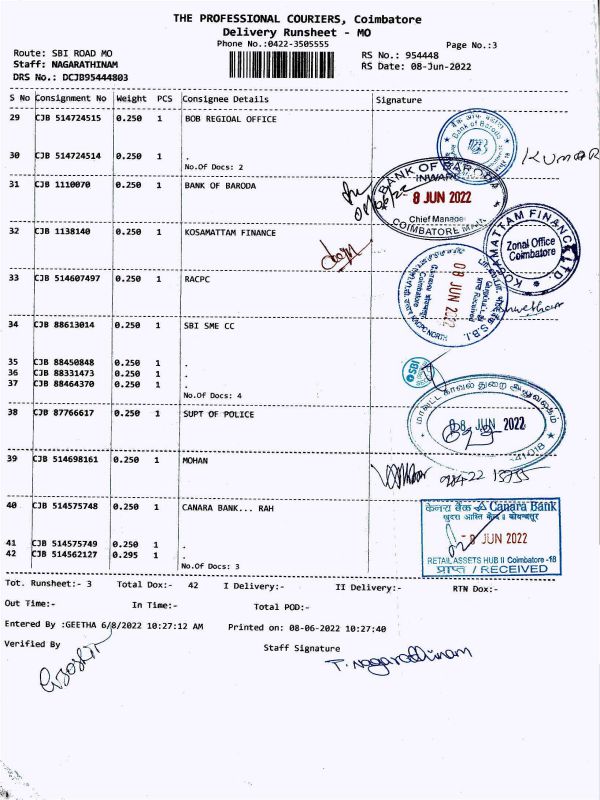 THE PROFESSIONAL COURIERS, Coimbatore
Delivery Runsheet - MO
Phone No.:0422-3505555
Page No.:3
Route: SBI ROAD MO
RS No.: 954448
Staff: NAGARATHINAM
RS Date: 08-Jun-2022
DRS No.: DCJB95444803
S No Consignment No Weight PCS Consignee Details Signature
29 CJB 514724515 0.250 1 BOB REGIOAL OFFICE
Bank of Baroda
30 CJB 514724514 0.250 1 .
KUMAR
No.Of Docs: 2
31 CJB 1110070 0.250 1 BANK OF BARODA
BANK OF BARODA
INWARD
8 JUN 2022
Chief Manager
COIMBATORE MAIN
32 CJB 1138140 0.250 1 KOSAMATTAM FINANCE
KOSAMATTAM FINANCE LTD.
Zonal Office
Coimbatore
33 CJB 514607497 0.250 1 RACPC
08 JUN 2022
S.B.I.
34 CJB 88613014 0.250 1 SBI SME CC
35 CJB 88450848 0.250 1 .
36 CJB 88331473 0.250 1 .
37 CJB 88464370 0.250 1 .
SBI
No.Of Docs: 4
38 CJB 87766617 0.250 1 SUPT OF POLICE
மாவட்ட காவல் துறை அலுவலகம்
08 JUN 2022
39 CJB 514698161 0.250 1 MOHAN
40 CJB 514575748 0.250 1 CANARA BANK... RAH
केनरा बैंक Canara Bank
8 JUN 2022
RETAIL ASSETS HUB II Coimbatore -18
प्राप्त / RECEIVED
41 CJB 514575749 0.250 1 .
42 CJB 514562127 0.295 1 .
No.Of Docs: 3
Tot. Runsheet:- 3 Total Dox:- 42 I Delivery:- II Delivery:- RTN Dox:-
Out Time:- In Time:- Total POD:-
Entered By :GEETHA 6/8/2022 10:27:12 AM Printed on: 08-06-2022 10:27:40
Verified By Staff Signature
T. Nagarathinam